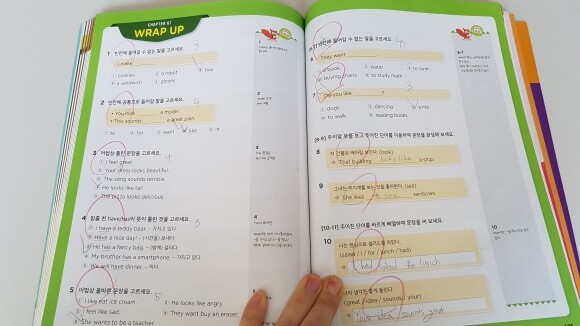 CHAPTER 07
WRAP UP
1 빈칸에 들어갈 수 없는 말을 고르세요. 3
I make
① cookies ② a robot ③ live
④ a sandwich ⑤ gloves
2 빈칸에 공통으로 들어갈 말을 고르세요. 4
• You look a model.
• This sounds a great plan.
① to ② for ③ want ④ like ⑤ in
3 어법상 틀린 문장을 고르세요. 4
① I feel great.
② Your dress looks beautiful.
③ The song sounds terrible.
④ He looks like tall.
⑤ The pizza looks delicious.
4 밑줄 친 have/has의 뜻이 틀린 것을 고르세요. 3
① I have a teddy bear. - 가지고 있다
② Have a nice day! - (시간을) 보내다
③ He has a fancy bag. - (병에) 걸리다
④ My brother has a smartphone. - 가지고 있다
⑤ We will have dinner. - 먹다
5 어법상 올바른 문장을 고르세요. 5
① I like eat ice cream.
② I feel like sad.
③ She wants to be a teacher.
④ He looks like angry.
⑤ They want buy an eraser.
빈칸에 들어갈 수 없는 말을 고르세요. 4
6 They want
① a book ② water ③ to swim
④ buying chairs ⑤ to study more
7 Do you like ?
① dogs ② dancing ③ write
④ to walk ⑤ reading books
[8-9] 우리말 뜻을 보고 주어진 단어를 이용하여 문장을 완성해 보세요.
8 저 건물은 컵처럼 보인다. (look)
→ That building looks like a cup.
9 그녀는 무지개를 보는 것을 좋아한다. (see)
→ She likes to see rainbows.
[10-11] 주어진 단어를 바르게 배열하여 문장을 써 보세요.
10 나는 점심으로 샐러드를 먹었다.
(salad / I / for / lunch / had)
→ I had salad for lunch
(great / idea / sounds / your)
→ Your idea sounds great
6-7
10